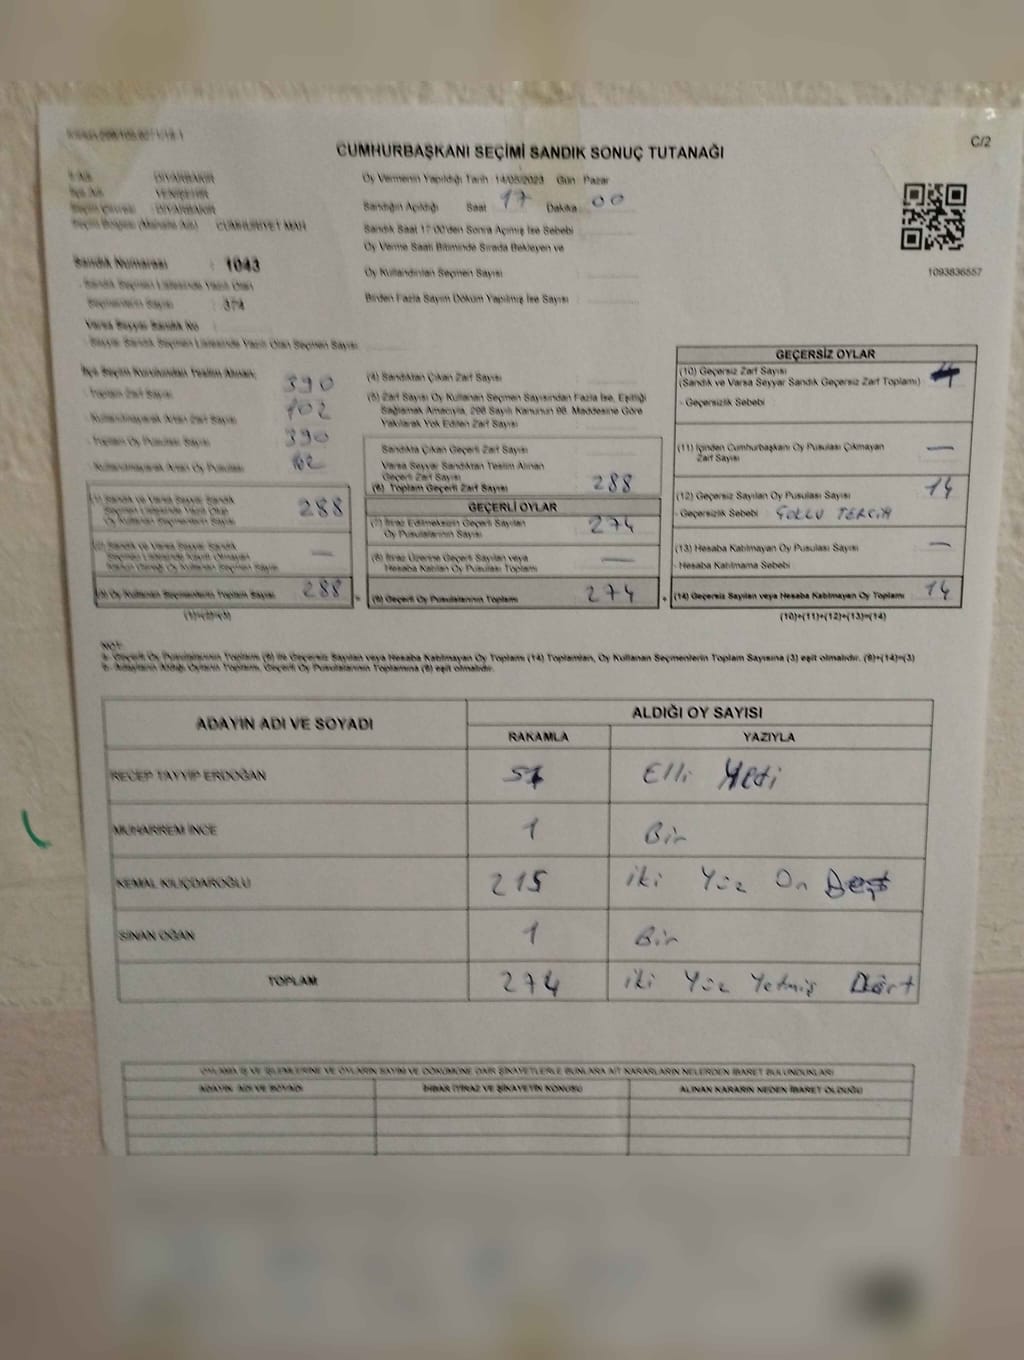 C/2
CUMHURBAŞKANI SEÇİMİ SANDIK SONUÇ TUTANAĞI
İli Adı : DİYARBAKIR
İlçe Adı : YENİŞEHİR
Seçim Çevresi : DİYARBAKIR
Seçim Bölgesi (Mahalle Adı) : CUMHURİYET MAH
Sandık Numarası : 1043
- Sandık Seçmen Listesinde Yazılı Olan
Seçmenlerin Sayısı : 374
Varsa Seyyar Sandık No :
- Seyyar Sandık Seçmen Listesinde Yazılı Olan Seçmen Sayısı
Oy Vermenin Yapıldığı Tarih 14/05/2023 Gün Pazar
Sandığın Açıldığı Saat 17 Dakika 00
Sandık Saat 17:00'den Sonra Açılmış İse Sebebi
Oy Verme Saati Bitiminde Sırada Bekleyen ve
Oy Kullandırılan Seçmen Sayısı
Birden Fazla Sayım Döküm Yapılmış İse Sayısı
1093836557
İlçe Seçim Kurulundan Teslim Alınan;
- Toplam Zarf Sayısı 390
- Kullanılmayarak Artan Zarf Sayısı 102
- Toplam Oy Pusulası Sayısı 390
- Kullanılmayarak Artan Oy Pusulası 102
(1) Sandık ve Varsa Seyyar Sandık
Seçmen Listesinde Yazılı Olup
Oy Kullanan Seçmenlerin Sayısı 288
(2) Sandık ve Varsa Seyyar Sandık
Seçmen Listesinde Kayıtlı Olmayan
Oy Kullanan Seçmenlerin Sayısı —
(3) Oy Kullanan Seçmenlerin Toplam Sayısı 288
(1)+(2)=(3)
(4) Sandıktan Çıkan Zarf Sayısı
(5) Zarf Sayısı Oy Kullanan Seçmen Sayısından Fazla İse, Eşitliği
Sağlamak Amacıyla, 298 Sayılı Kanunun 98. Maddesine Göre
Yakılarak Yok Edilen Zarf Sayısı
Sandıkta Çıkan Geçerli Zarf Sayısı
Varsa Seyyar Sandıktan Teslim Alınan
Geçerli Zarf Sayısı
(6) Toplam Geçerli Zarf Sayısı 288
GEÇERLİ OYLAR
(7) İtiraz Edilmeksizin Geçerli Sayılan
Oy Pusulalarının Sayısı 274
(8) İtiraz Üzerine Geçerli Sayılan veya
Hesaba Katılan Oy Pusulası Toplamı —
(9) Geçerli Oy Pusulalarının Toplamı 274
GEÇERSİZ OYLAR
(10) Geçersiz Zarf Sayısı
(Sandık ve Varsa Seyyar Sandık Geçersiz Zarf Toplamı)
- Geçersizlik Sebebi
(11) İçinden Cumhurbaşkanı Oy Pusulası Çıkmayan
Zarf Sayısı —
(12) Geçersiz Sayılan Oy Pusulası Sayısı 14
- Geçersizlik Sebebi : ÇOKLU TERCİH
(13) Hesaba Katılmayan Oy Pusulası Sayısı —
- Hesaba Katılmama Sebebi
(14) Geçersiz Sayılan veya Hesaba Katılmayan Oy Toplamı 14
(10)+(11)+(12)+(13)=(14)
NOT:
a- Geçerli Oy Pusulalarının Toplamı (9) ile Geçersiz Sayılan veya Hesaba Katılmayan Oy Toplamı (14) Toplamları, Oy Kullanan Seçmenlerin Toplam Sayısına (3) eşit olmalıdır. (9)+(14)=(3)
b- Adayların Aldığı Oyların Toplamı, Geçerli Oy Pusulalarının Toplamına (9) eşit olmalıdır.
ADAYIN ADI VE SOYADI ALDIĞI OY SAYISI
RAKAMLA YAZIYLA
RECEP TAYYİP ERDOĞAN 57 Elli Yedi
MUHARREM İNCE 1 Bir
KEMAL KILIÇDAROĞLU 215 iki Yüz On Beş
SİNAN OĞAN 1 Bir
TOPLAM 274 iki Yüz Yetmiş Dört
OYLAMA İŞ VE İŞLEMLERİNE VE OYLARIN SAYIM VE DÖKÜMÜNE DAİR ŞİKAYETLERLE BUNLARA AİT KARARLARIN NELERDEN İBARET BULUNDUKLARI
ADAYIN ADI VE SOYADI İHBAR İTİRAZ VE ŞİKAYETİN KONUSU ALINAN KARARIN NEDEN İBARET OLDUĞU